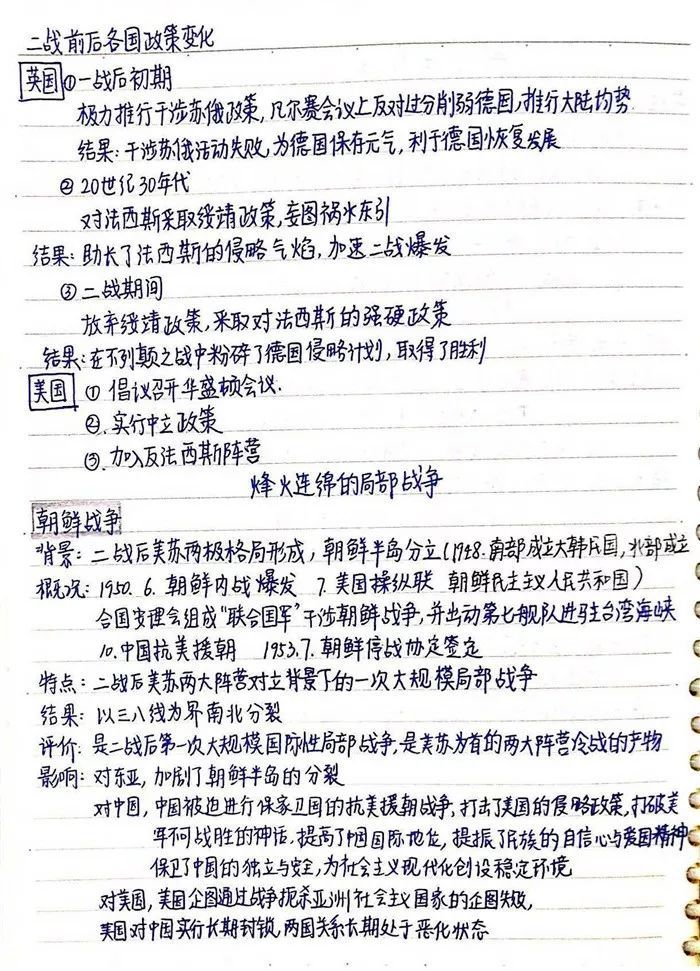 二战前后各国政策变化
英国 ①一战后初期
极力推行干涉苏俄政策,凡尔赛会议上反对过分削弱德国,推行大陆均势.
结果:干涉苏俄活动失败,为德国保存元气,利于德国恢复发展
②20世纪30年代
对法西斯采取绥靖政策,妄图祸水东引
结果:助长了法西斯的侵略气焰,加速二战爆发
③二战期间
放弃绥靖政策,采取对法西斯的强硬政策
结果:在不列颠之战中粉碎了德国侵略计划,取得了胜利
美国 ① 倡议召开华盛顿会议.
②.实行中立政策
③.加入反法西斯阵营
烽火连绵的局部战争
朝鲜战争
背景:二战后美苏两极格局形成,朝鲜半岛分立(1948.南部成立大韩民国,北部成立
概况:1950.6.朝鲜内战爆发 7.美国操纵联 朝鲜民主主义人民共和国)
合国安理会组成“联合国军”干涉朝鲜战争,并出动第七舰队进驻台湾海峡
10.中国抗美援朝 1953.7.朝鲜停战协定签定
特点:二战后美苏两大阵营对立背景下的一次大规模局部战争
结果:以三八线为界南北分裂
评价:是二战后第一次大规模国际性局部战争,是美苏为首的两大阵营冷战的产物
影响:对东亚,加剧了朝鲜半岛的分裂
对中国,中国被迫进行保家卫国的抗美援朝战争,打击了美国的侵略政策,打破美
军不可战胜的神话.提高了中国国际地位,提振了民族的自信心与爱国精神
保卫了中国的独立与安全,为社会主义现代化创设稳定环境
对美国,美国企图通过战争扼杀亚洲社会主义国家的企图失败,
美国对中国实行长期封锁,两国关系长期处于恶化状态